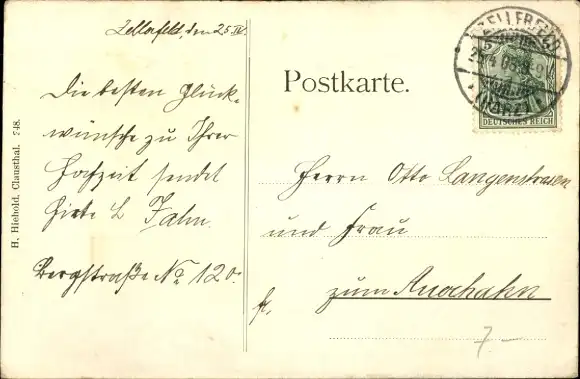 Zellerfeld, den 25.IV.
Die besten Glück-
wünsche zu Ihrer
Hochzeit sendet
L Jahn.
Bergstraße No 120.
H. Hiehold, Clausthal. 548.
Postkarte.
ZELLERFELD
(HARZ)
DEUTSCHES REICH
Herrn Otto Langenstrasen
und Frau
zum Auerhahn
fr.
7.-